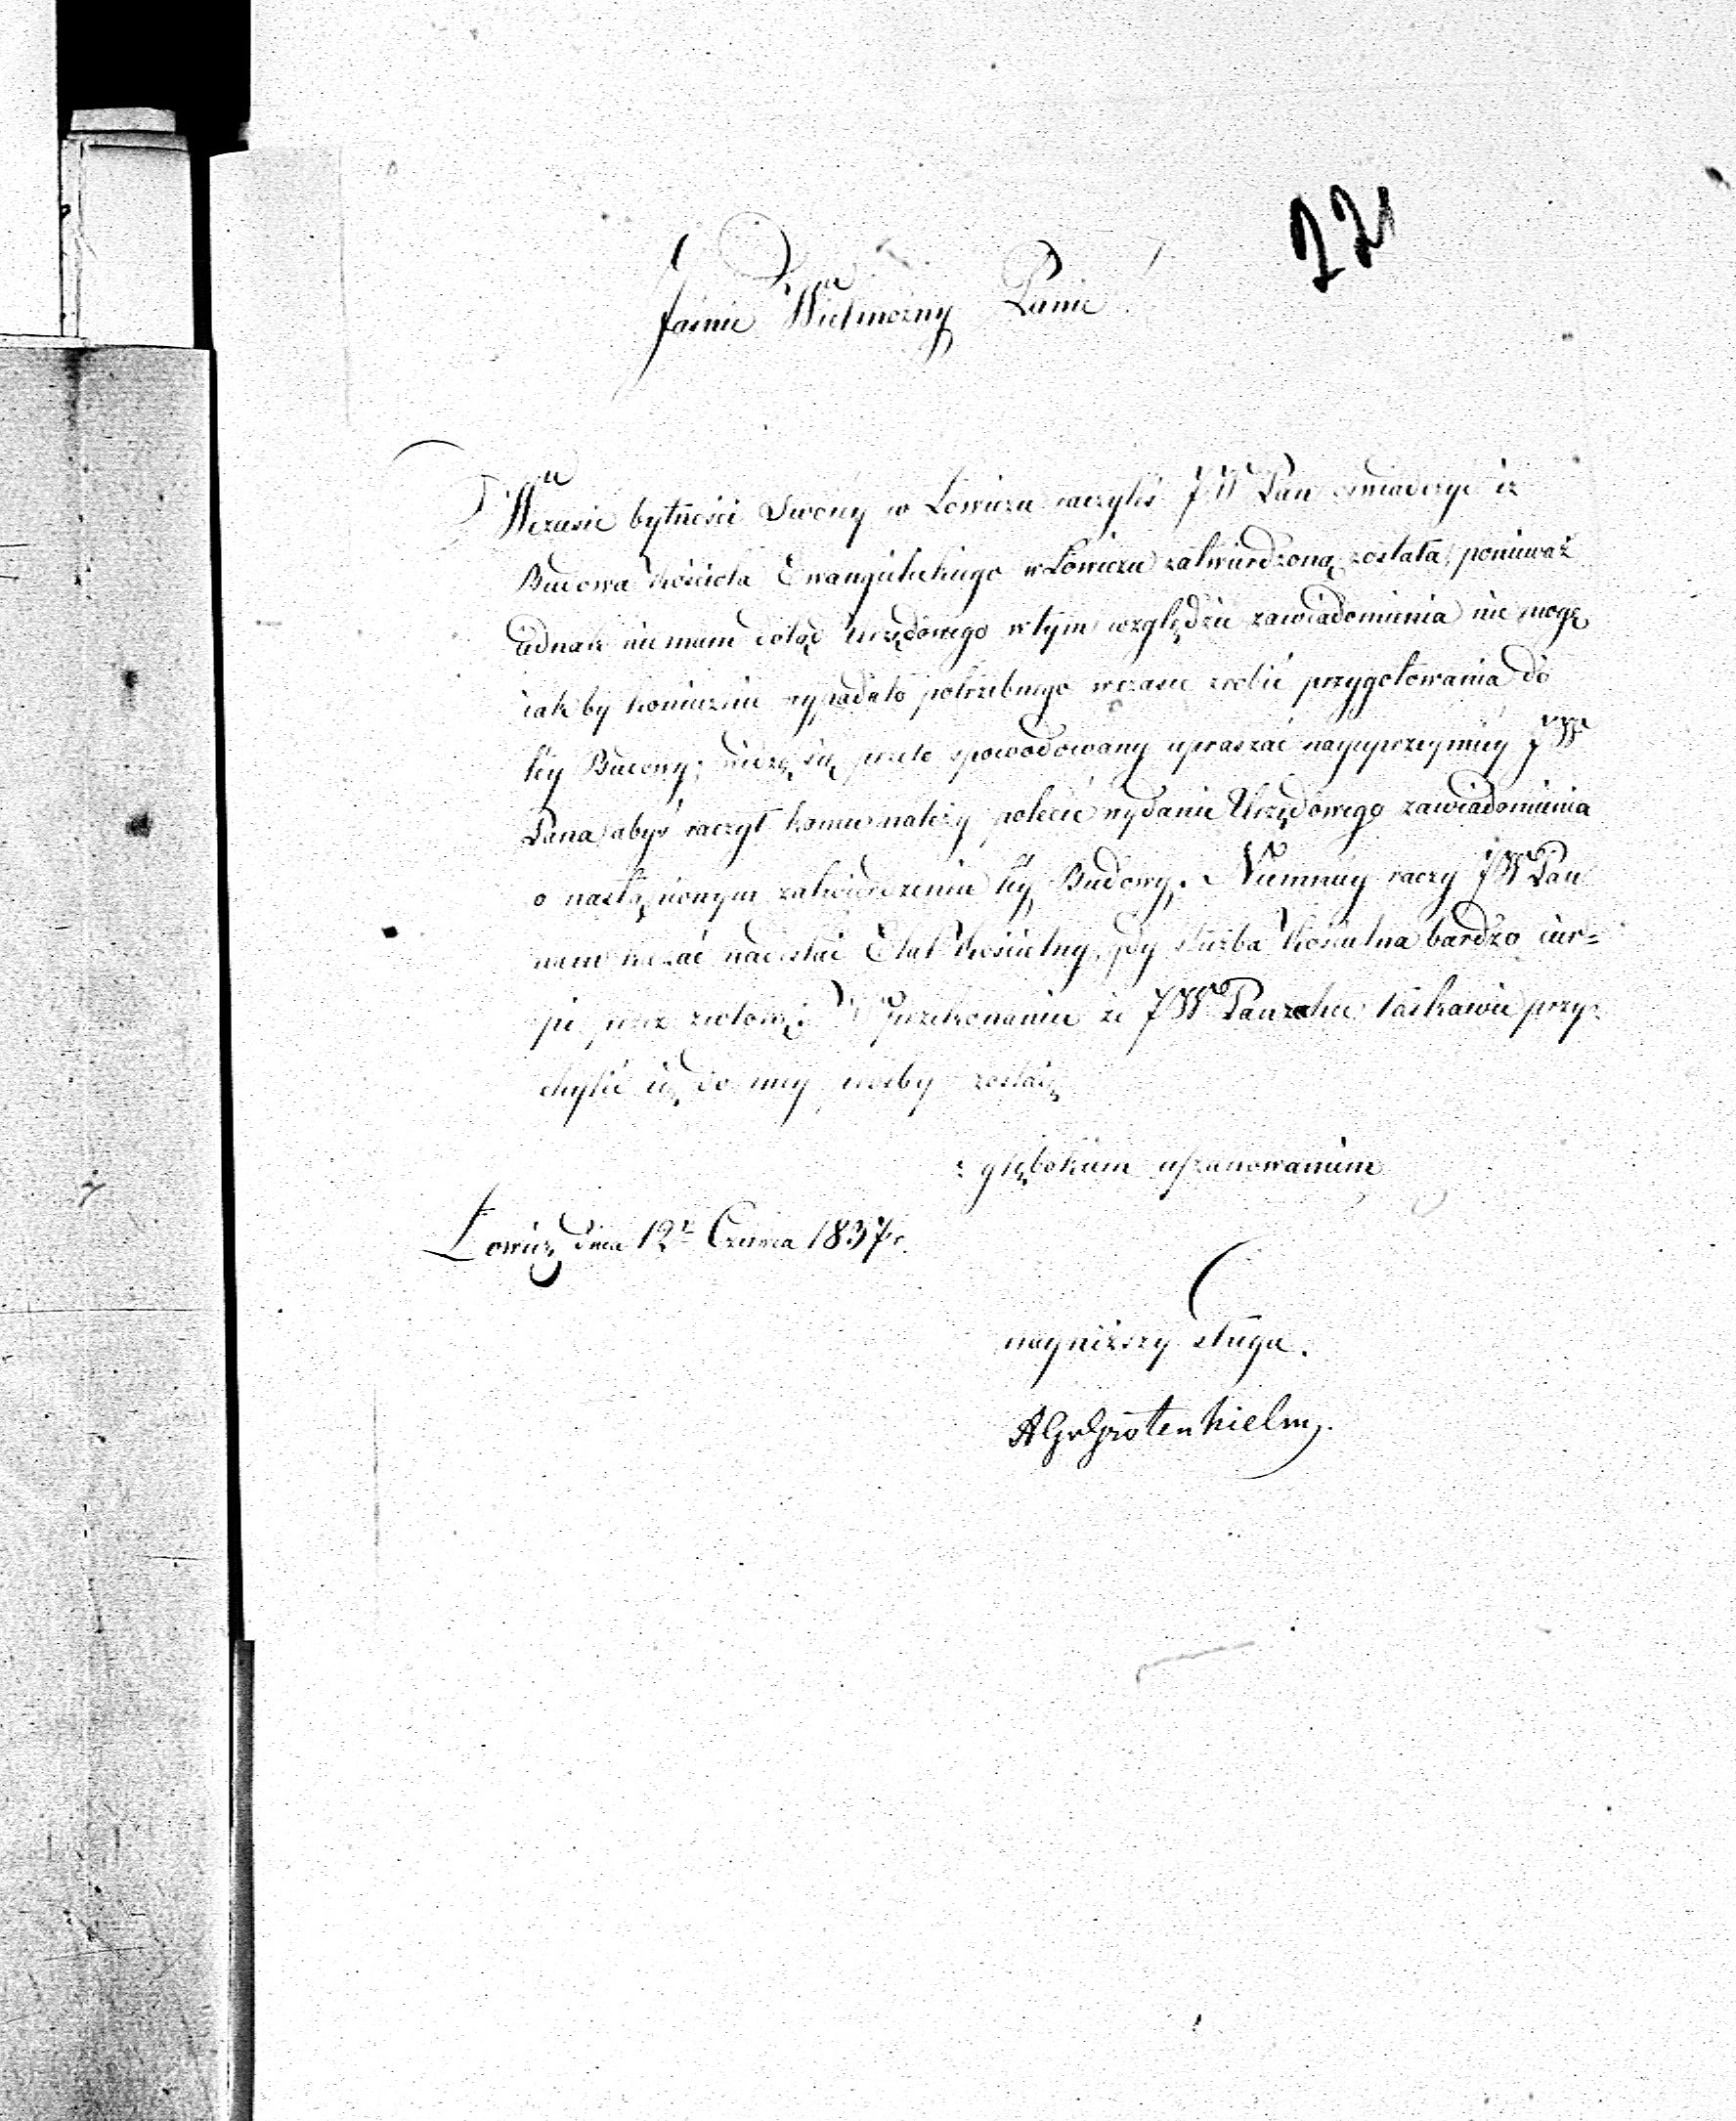 22
Jaśnie Wielmożny Panie!
W czasie bytności Swoiey w Łowiczu raczyłeś JW Pan oświadczyć iż
Budowa kościoła Ewangielickiego w Łowiczu zatwierdzoną została, ponieważ
iednak nie mam dotąd urzędowego w tym względzie zawiadomienia nie mogę
iak by koniecznie wypadało potrzebnego wczasie zrobić przygotowania do
tey Budowy; widzę się przeto spowodowany upraszać nayuprzeymiey JW
Pana abyś raczył komu należy polecić wydanie Urzędowego zawiadomienia
o nastąpionym zatwierdzeniu tey Budowy. Niemniey raczy JW Pan
nam kazać nadesłać Etat kościelny, gdy służba kościelna bardzo cier=
pi przez zwłokę. W przekonaniu że JW Pan zechce łaskawie przy=
chylić się do mey prośby zostaię
z głębokiem uszanowaniem
Łowicz dnia 12º Czerwca 1837 r.
nayniższy sługa.
AGvGrotenhielm.